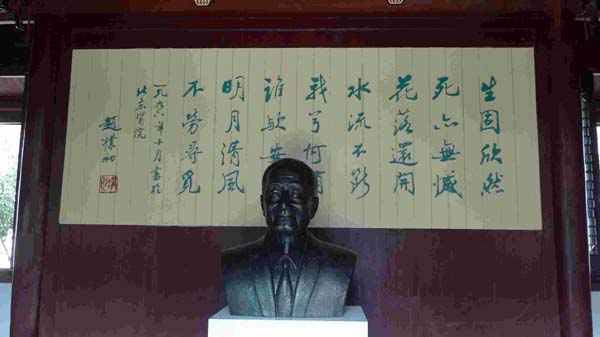 生固欣然
死亦無憾
花落還開
水流不斷
我兮何有
誰歟安
明月清風
不勞尋覓
一九九六年十月書於
北京醫院
趙樸初